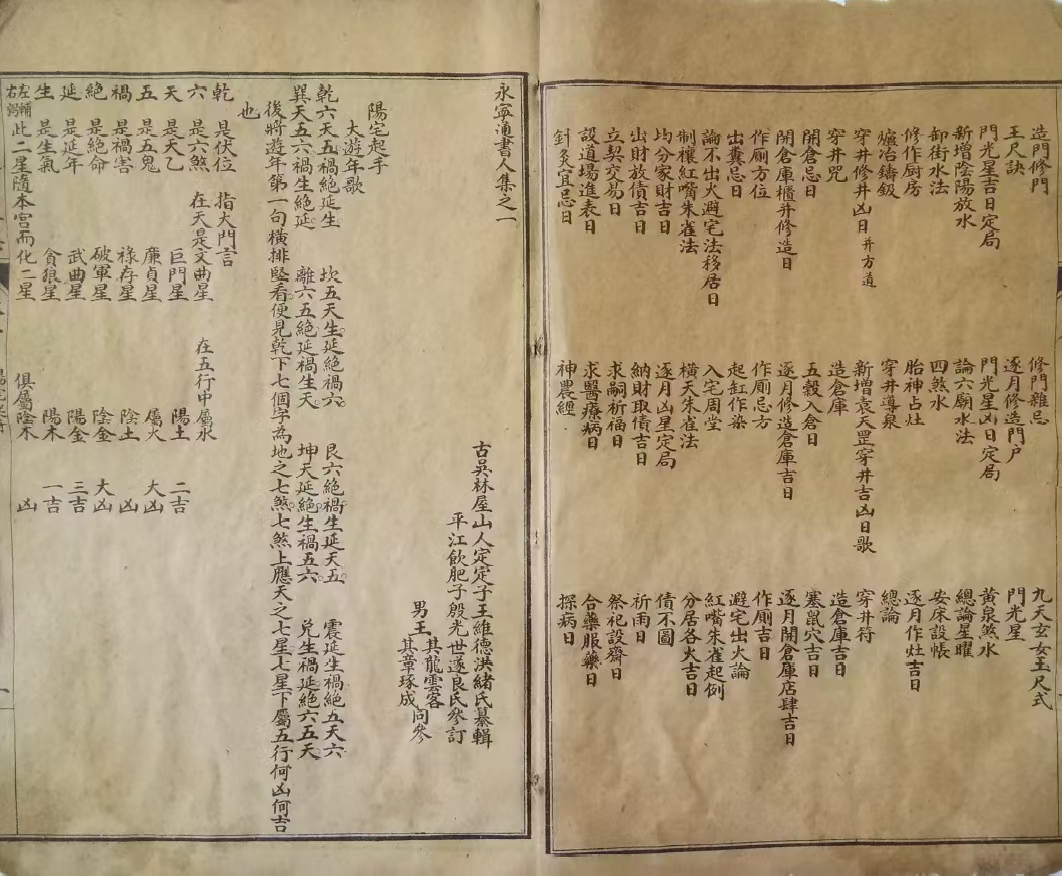 造門修門 修門雜忌 九天玄女玉尺式
玉尺訣 逐月修造門户 門光星
門光星吉日定局 門光星凶日定局 黃泉煞水
新增陰陽放水 論六願水法 總論星曜
卸街水法 四煞水 安床設帳
修作厨房 胎神占灶 逐月作灶吉日
爐冶鑄鈒 穿井導泉 總論
穿井修井凶日 井方道 新增袁天罡穿井吉凶日歌 穿井符
穿井咒 造倉庫 造倉庫吉日
開倉忌日 五穀入倉日 塞鼠穴吉日
開倉庫櫃并修造日 逐月修造倉庫吉日 逐月開倉庫店肆吉日
作厠方位 作厠忌方 作厠吉日
出糞忌日 起缸作染 避宅出火論
論不出火避宅法移居日 入宅周堂 紅嘴朱雀起例
制禳紅嘴朱雀法 橫天朱雀法 分居各火吉日
均分家財吉日 逐月凶星定局 債不圖
出財放債吉日 納財取債吉日 祈雨日
立契交易日 求嗣祈福日 祭祀設齋日
設道場進表日 求醫療病日 合藥服藥日
針灸宜忌日 神農經 探病日
永寧通書人集之一
古吳林屋山人定定子王維德洪緒氏纂輯
平江飲肥子殷光世遂良氏參訂
男王其龍雲客
其章琢成同參
陽宅起手
大遊年歌
乾六天五禍絕延生 坎五天生延絕禍六 艮六絕禍生延天五 震延生禍絕五天六
巽天五六禍生絕延 離六五絕延禍生天 坤天延絕生禍五六 兌生禍延絕六五天
後將遊年第一句橫排竪看便見乾下七個字為地之七煞七煞上應天之七星七星下屬五行何凶何吉
也
乾 是伏位 指大門言
六 是六煞 在天是文曲星 在五行中屬水
天 是天乙 巨門星 陽土 二吉
五 是五鬼 廉貞星 屬火 大凶
禍 是禍害 祿存星 陰土 凶
絕 是絕命 破軍星 陰金 大凶
延 是延年 武曲星 陽金 三吉
生 是生氣 貪狼星 陽木 一吉
左輔右弼 此二星隨本宮而化二星 俱屬陰木 凶